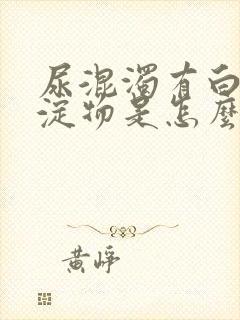 尿混濁有白
淀物是怎麼
黄崢